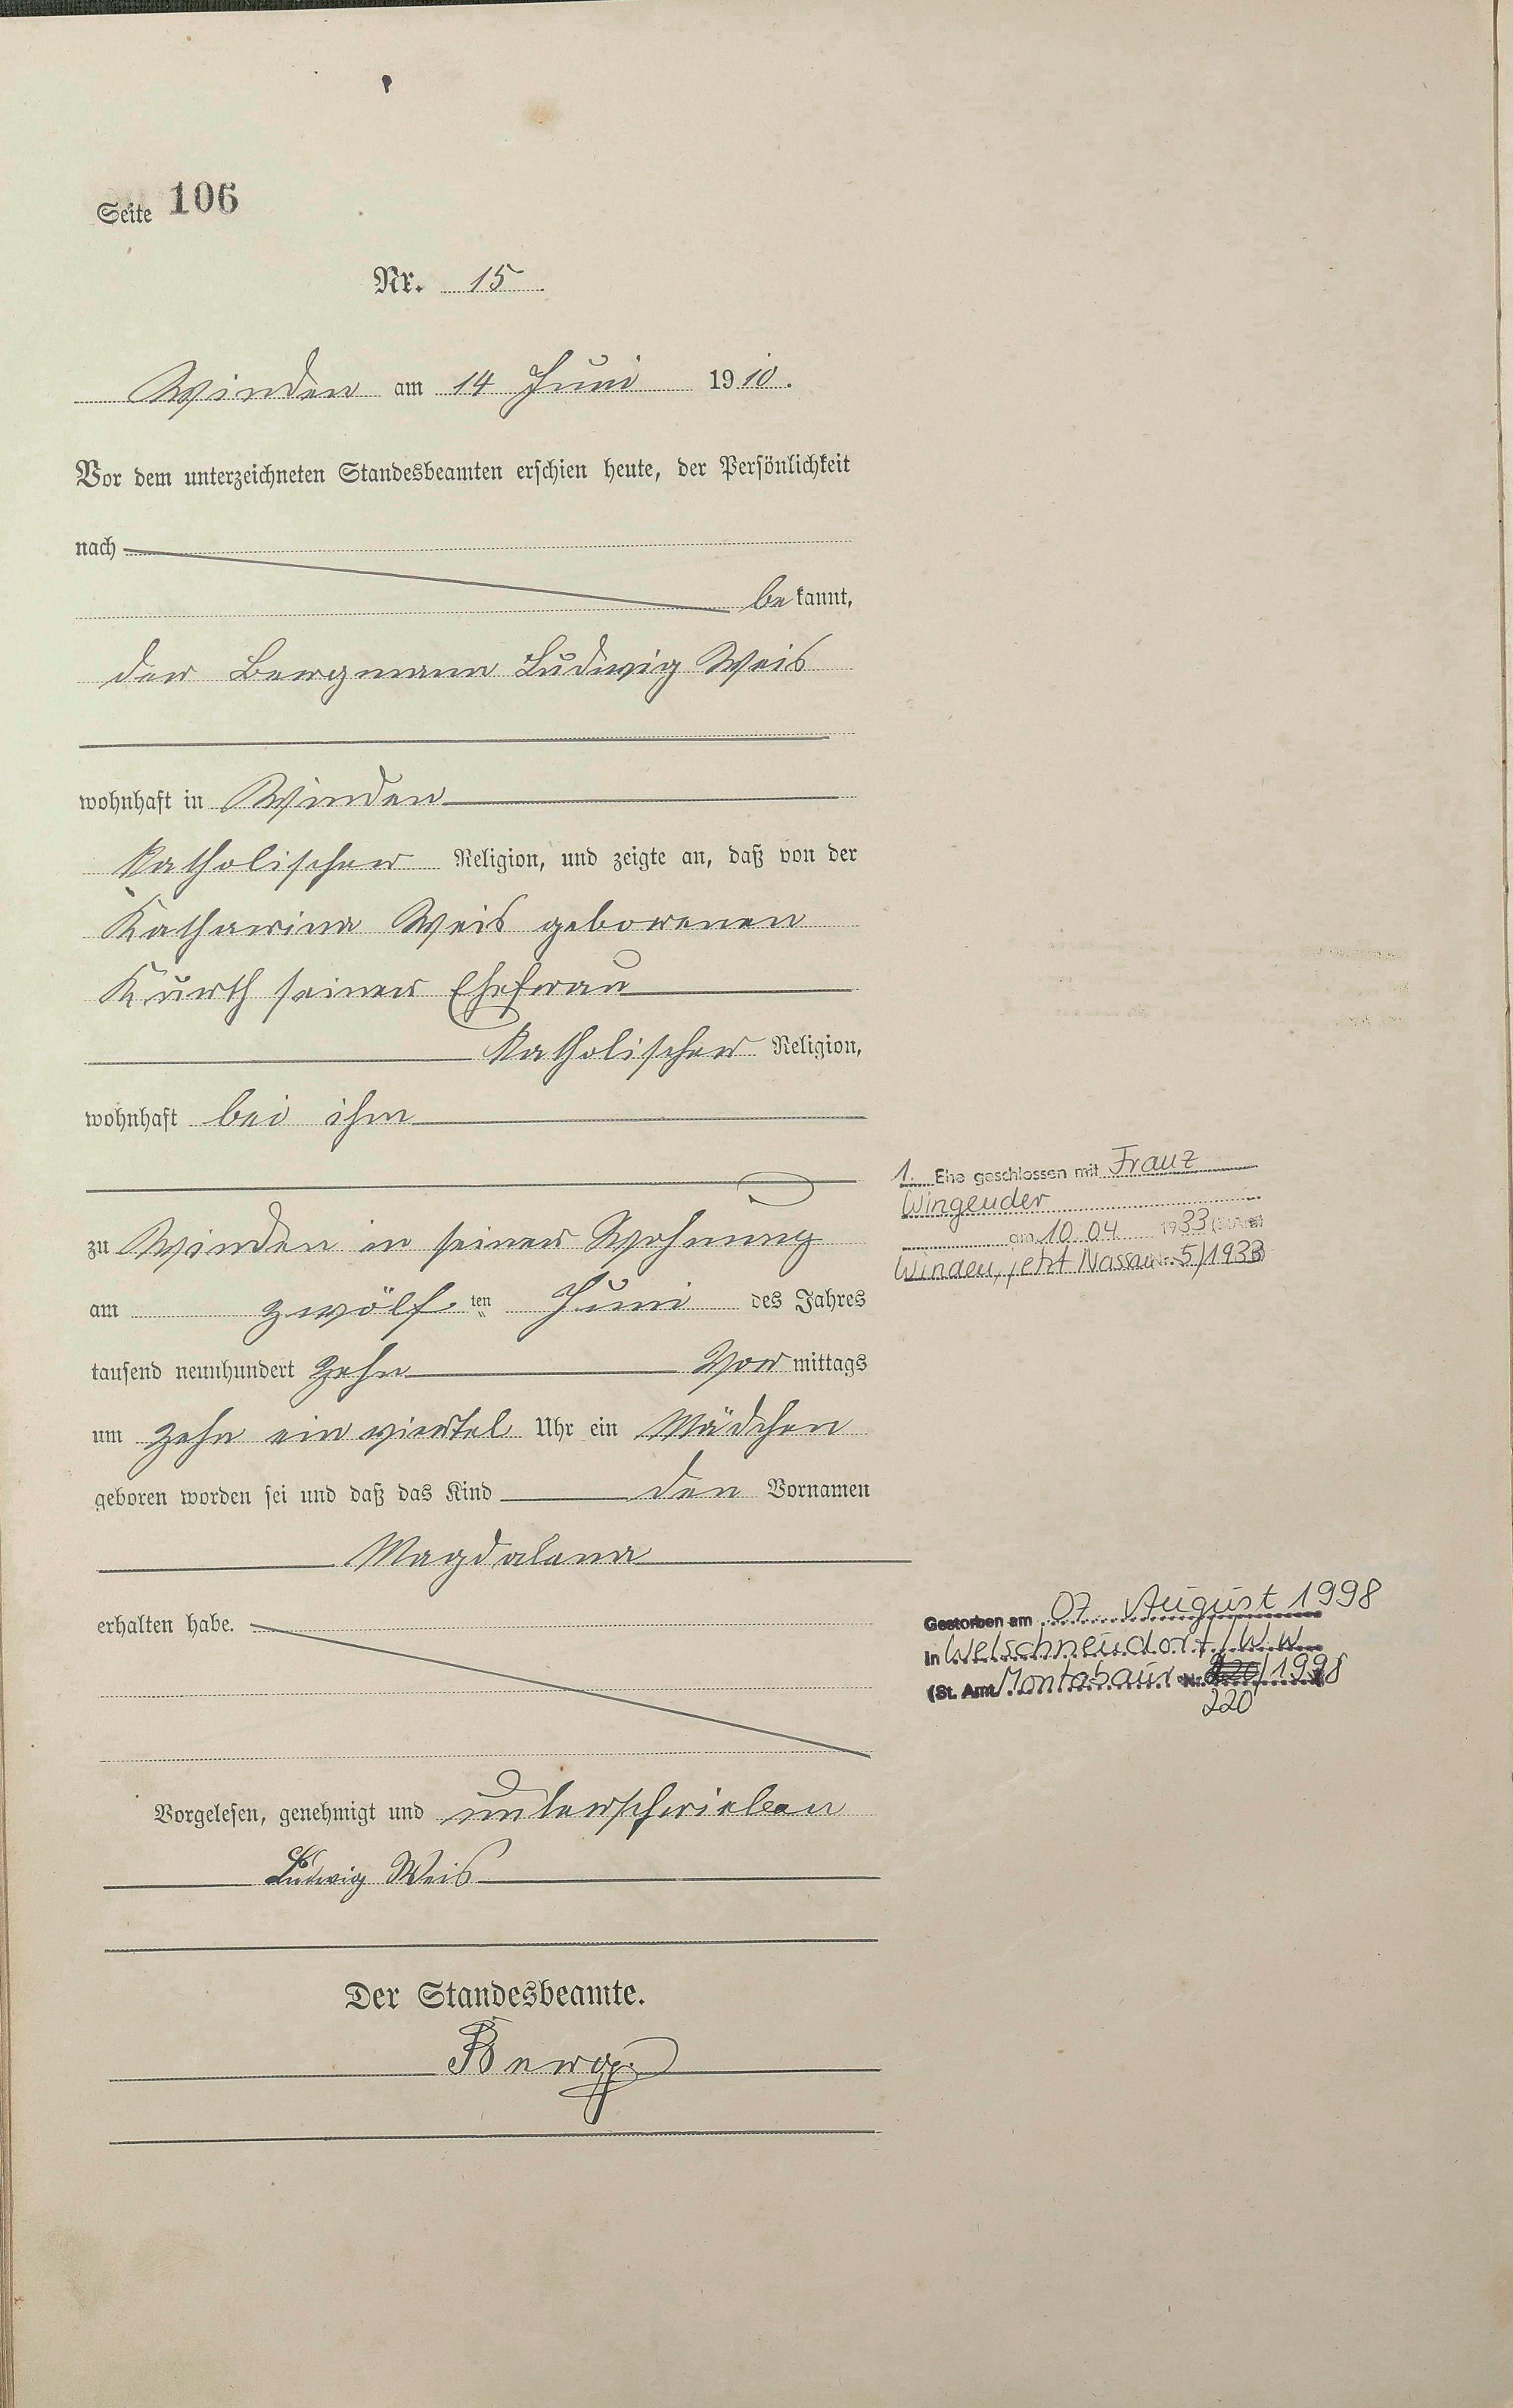 Seite 106
Nr. 15
Winden am 14 Juni 1910.
Vor dem unterzeichneten Standesbeamten erschien heute, der Persönlichkeit
nach
bekannt,
der Bergmann Ludwig Weis
wohnhaft in Winden
katholischer Religion, und zeigte an, daß von der
Katharina Weis geborenen
Kurth seiner Ehefrau
katholischer Religion,
wohnhaft bei ihm
zu Winden in seiner Wohnung
am zwölften Juni des Jahres
tausend neunhundert zehn Vormittags
um zehn ein viertel Uhr ein Mädchen
geboren worden sei und daß das Kind den Vornamen
Magdalena
erhalten habe.
Vorgelesen, genehmigt und unterschrieben
Ludwig Weis
Der Standesbeamte.
Berg
1. Ehe geschlossen mit Franz
Wingender
am 10.04 1933 (St.Amt
Winden, jetzt Nassau Nr. 5/1933)
Gestorben am 07. August 1998
in Welschneudorf/W.W.
(St. Amt Montabaur Nr. /1998)
220